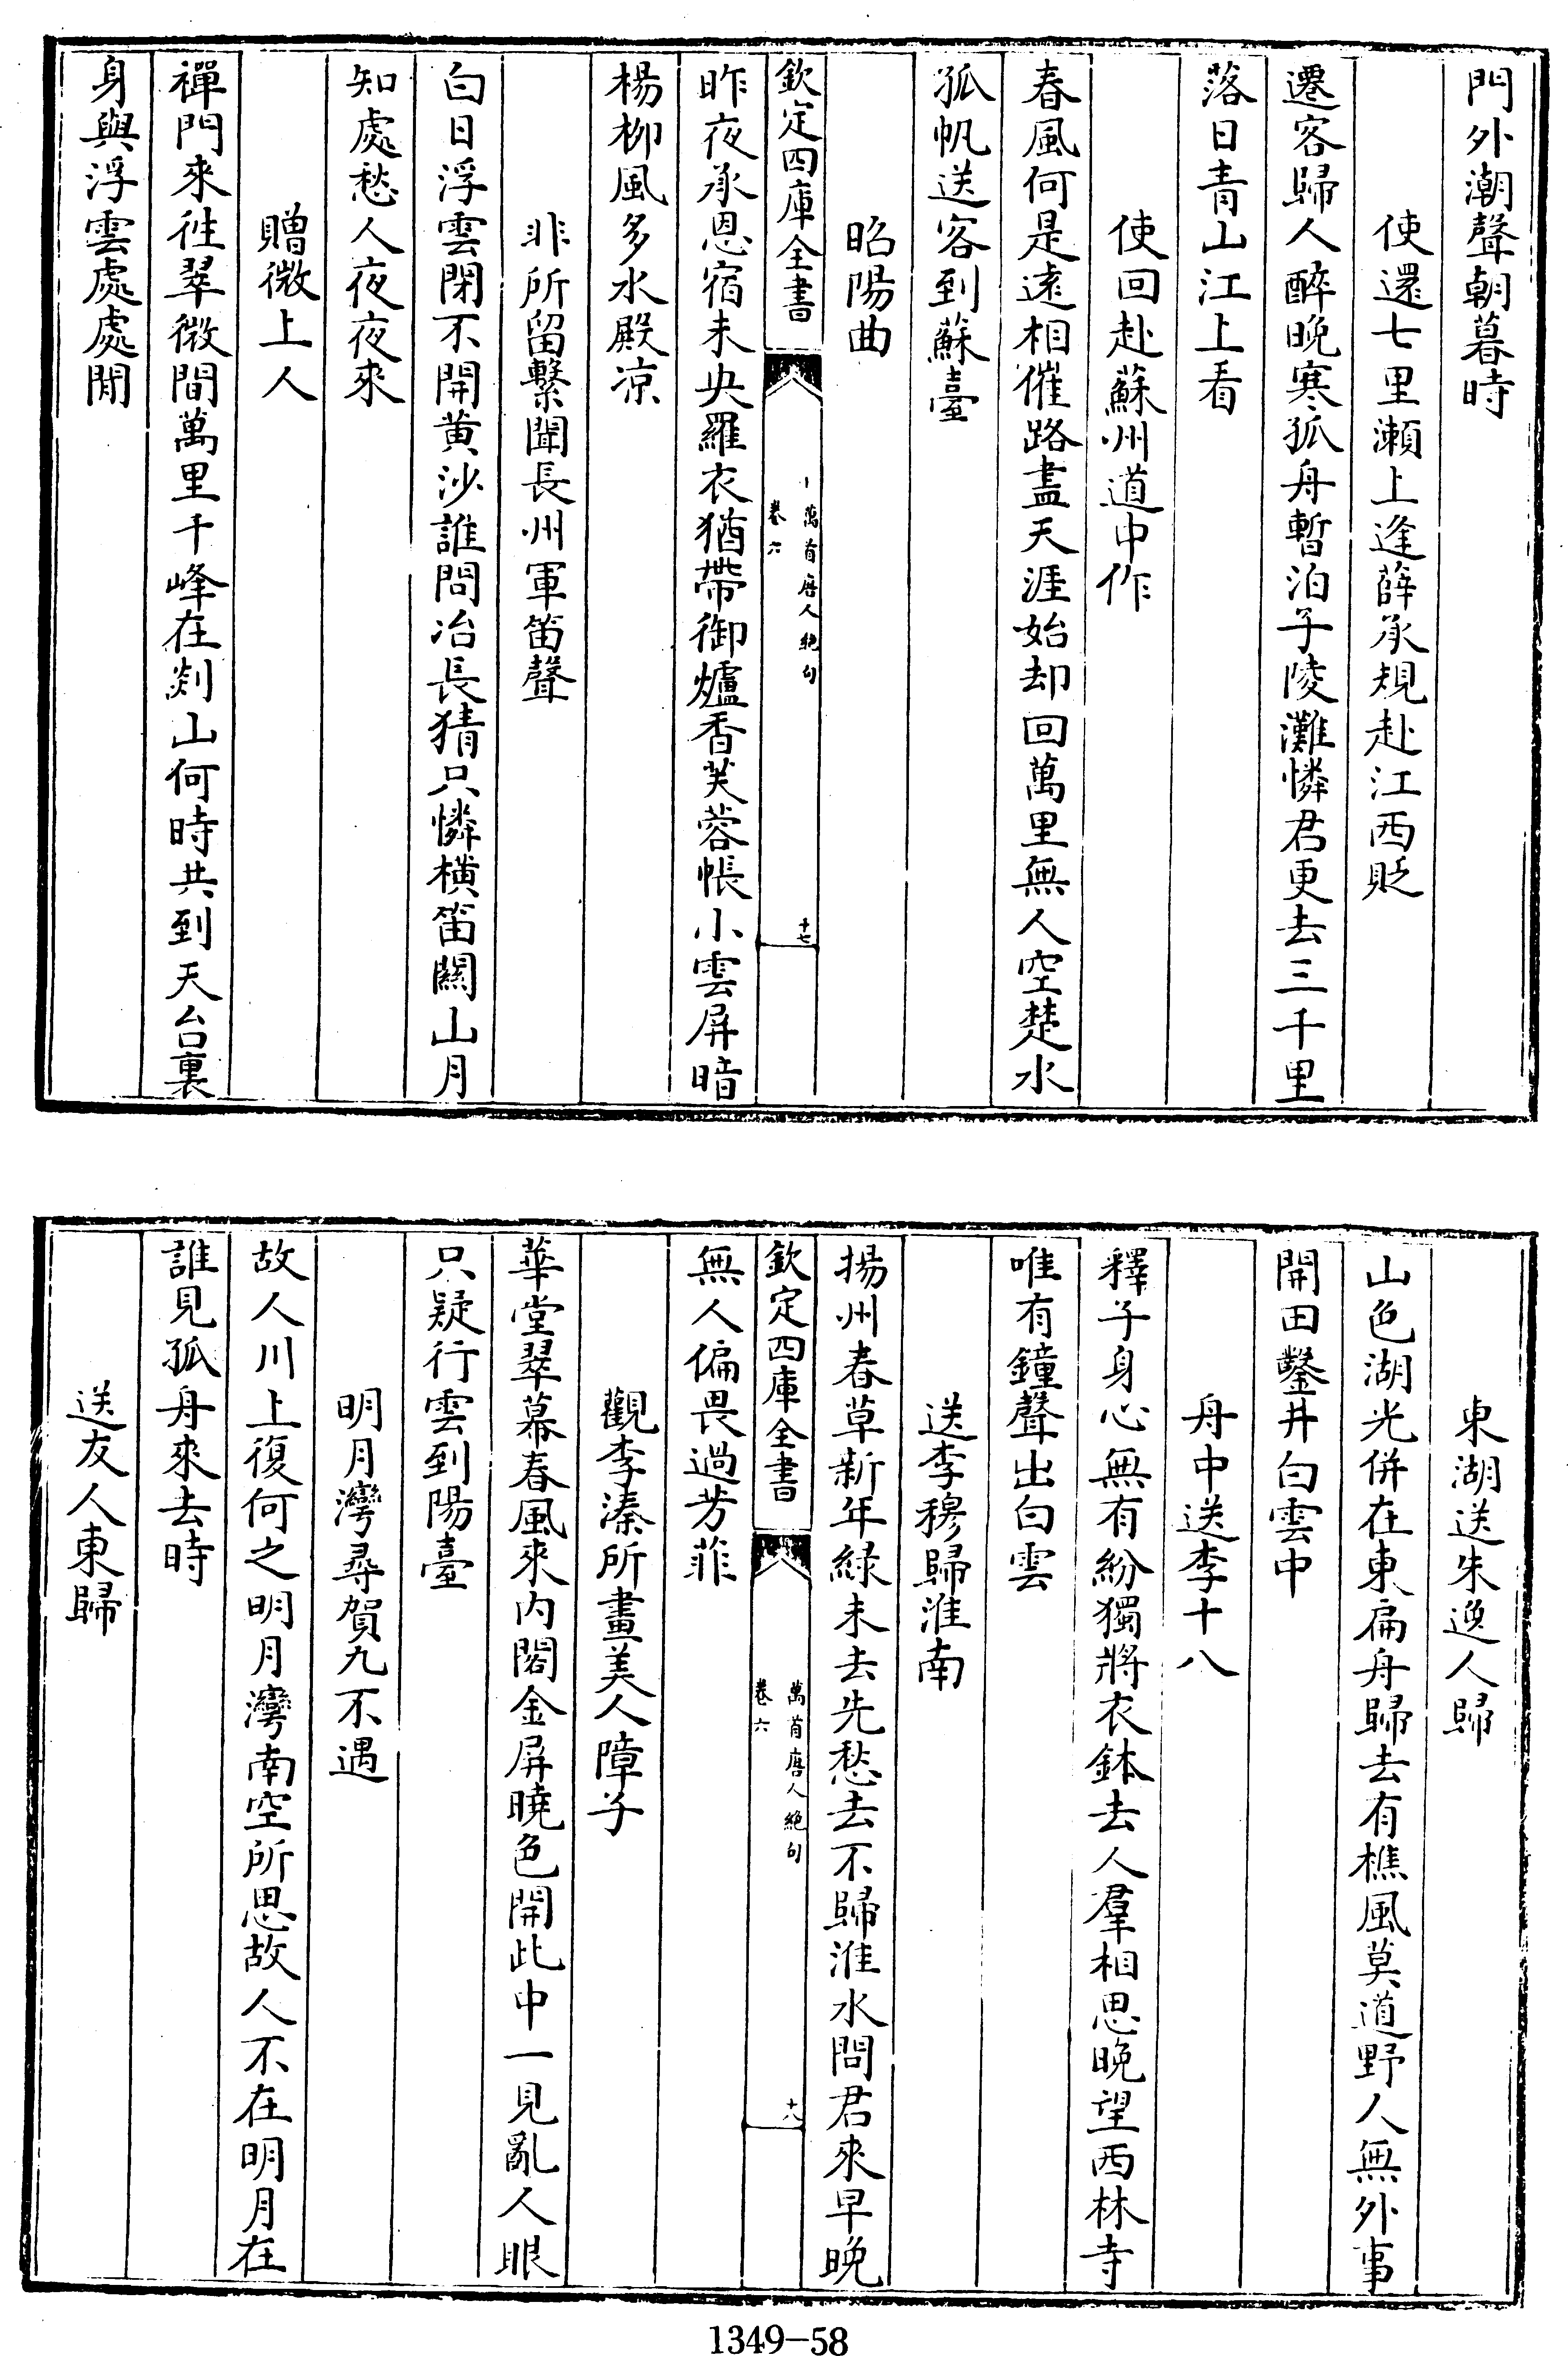 門外潮聲朝暮時
使還七里瀨上逢薛承規赴江西貶
遷客歸人醉晚寒孤舟暫泊子陵灘憐君更去三千里
落日青山江上看
使回赴蘇州道中作
春風何是遠相催路盡天涯始却回萬里無人空楚水
孤帆送客到蘇臺
昭陽曲
欽定四庫全書
萬首唐人絶句
卷六
十七
昨夜承恩宿未央羅衣猶帶御爐香芙蓉帳小雲屏暗
楊柳風多水殿凉
非所留繫聞長州軍笛聲
白日浮雲閉不開黄沙誰問冶長猜只憐橫笛關山月
知處愁人夜夜來
贈微上人
禪門來往翠微間萬里千峰在剡山何時共到天台裏
身與浮雲處處閒
東湖送朱逸人歸
山色湖光併在東扁舟歸去有樵風莫道野人無外事
開田鑿井白雲中
舟中送李十八
釋子身心無有紛獨將衣鉢去人羣相思晚望西林寺
唯有鐘聲出白雲
送李穆歸淮南
揚州春草新年綠未去先愁去不歸淮水問君來早晚
欽定四庫全書
萬首唐人絶句
卷六
十八
無人偏畏過芳菲
觀李湊所畫美人障子
華堂翠幕春風來内閣金屏曉色開此中一見亂人眼
只疑行雲到陽臺
明月灣尋賀九不遇
故人川上復何之明月灣南空所思故人不在明月在
誰見孤舟來去時
送友人東歸
1349-58